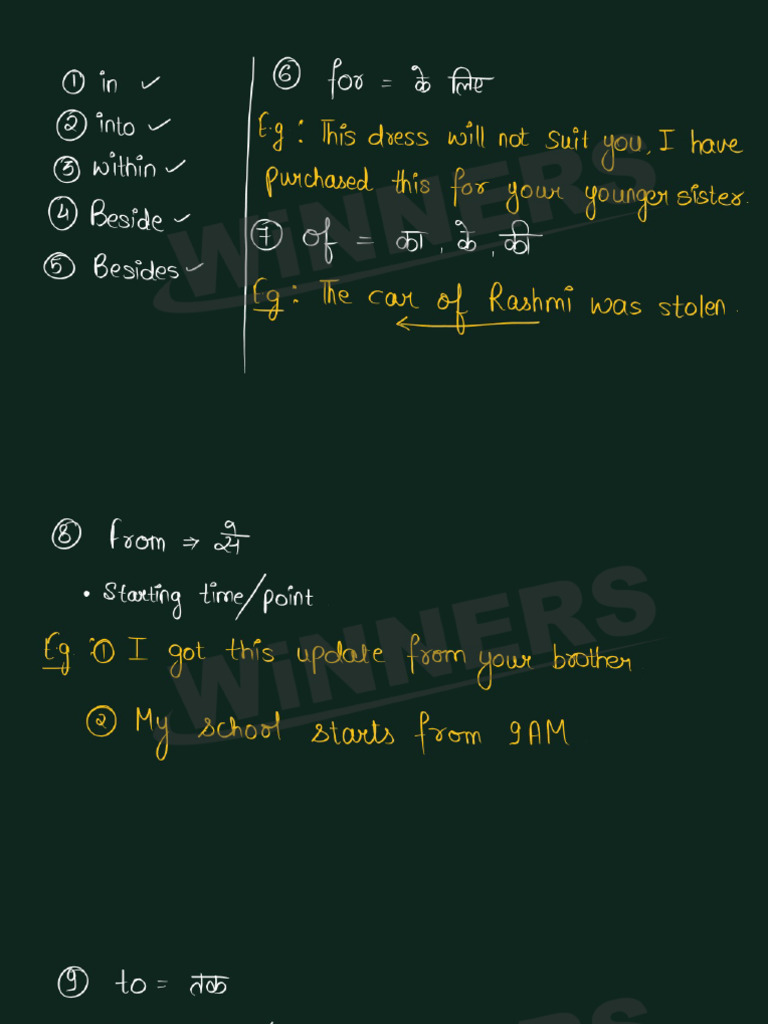 ① in ✓
② into ✓
③ within ✓
④ Beside ✓
⑤ Besides ✓
⑥ for = के लिए
E.g : This dress will not suit you, I have
purchased this for your younger sister.
⑦ of = का, के, की
Eg : The car of Rashmi was stolen.
WiNNERS
⑧ from ⇒ से
• Starting time/point
Eg : ① I got this update from your brother
② My school starts from 9AM
WiNNERS
⑨ to = तक